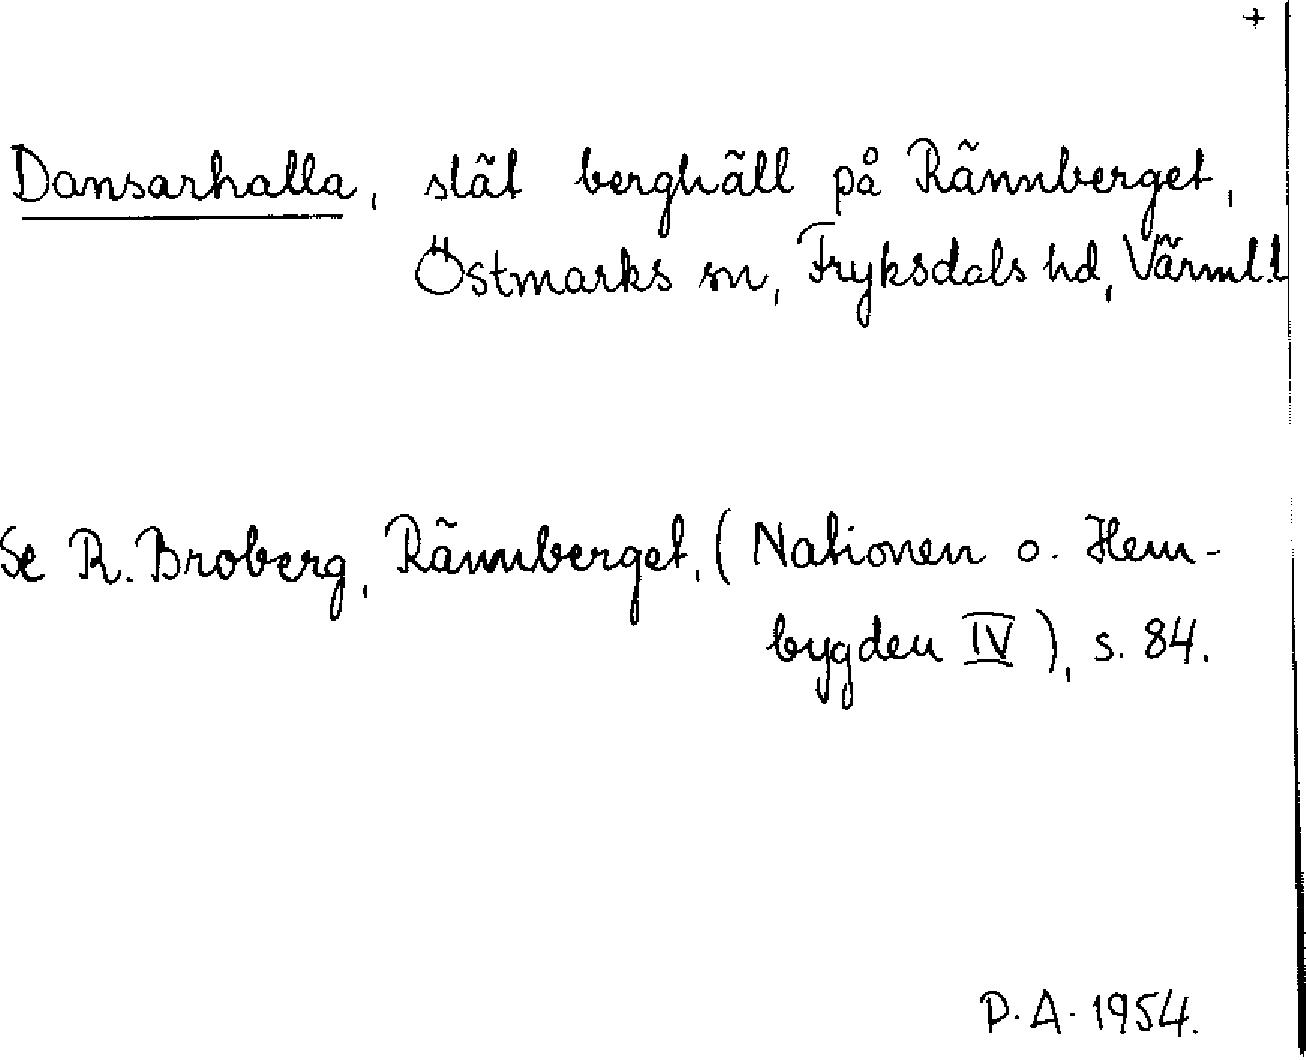 +
Dansarhalla, slät berghäll på Rännberget,
Östmarks sn, Fryksdals hd, Värml.l
Se R. Broberg, Rännberget, (Nationen o. Hem-
bygden IV), s. 84.
P.A. 1954.